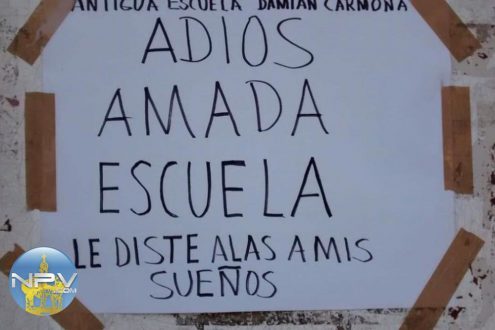 ANTIGUA ESCUELA DAMIAN CARMONA
ADIOS
AMADA
ESCUELA
LE DISTE ALAS A MIS
SUEÑOS
NPV
.COM